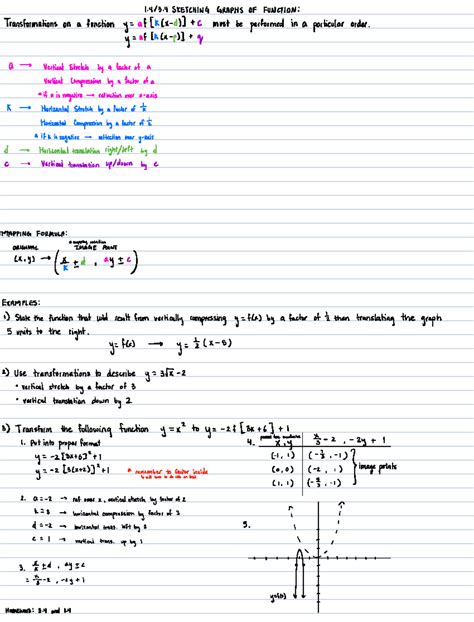 1.4/3.4 SKETCHING GRAPHS OF FUNCTION:
Transformations on a function y = af[k(x-d)] + c must be performed in a particular order.
y = af[k(x-p)] + q
a → Vertical Stretch by a factor of a
Vertical Compression by a factor of a
* if a is negative → reflection over x-axis
K → Horizontal Stretch by a factor of 1/k
Horizontal Compression by a factor of 1/k
* if k is negative → reflection over y-axis
d → Horizontal translation right/left by d
c → Vertical translation up/down by c
MAPPING FORMULA:
ORIGINAL IMAGE POINT
(x,y) → (x/k ± d , ay ± c)
EXAMPLES:
1) State the function that would result from vertically compressing y = f(x) by a factor of 1/2 then translating the graph
5 units to the right.
y = f(x) → y = 1/2 (x-5)
2) Use transformations to describe y = 3√x - 2
• vertical stretch by a factor of 3
• vertical translation down by 2
3) Transform the following function y = x² to y = -2f[3x+6] + 1
1. Put into proper format
y = -2[3x+6]² + 1
y = -2[3(x+2)]² + 1
* remember to factor inside
2. a = -2 → ref over x, vertical stretch by factor of 2
k = 3 → horizontal compression by factor of 3
d = -2 → horizontal trans. left by 2
c = 1 → vertical trans. up by 1
3. x/k ± d , ay ± c
= x/3 - 2 , -2y + 1
4. x, y x/3 - 2 , -2y + 1
(-1, 1)
(0,0) (-2, 1)
(1, 1)
image points
5.
Homework: 3.4 and 1.4